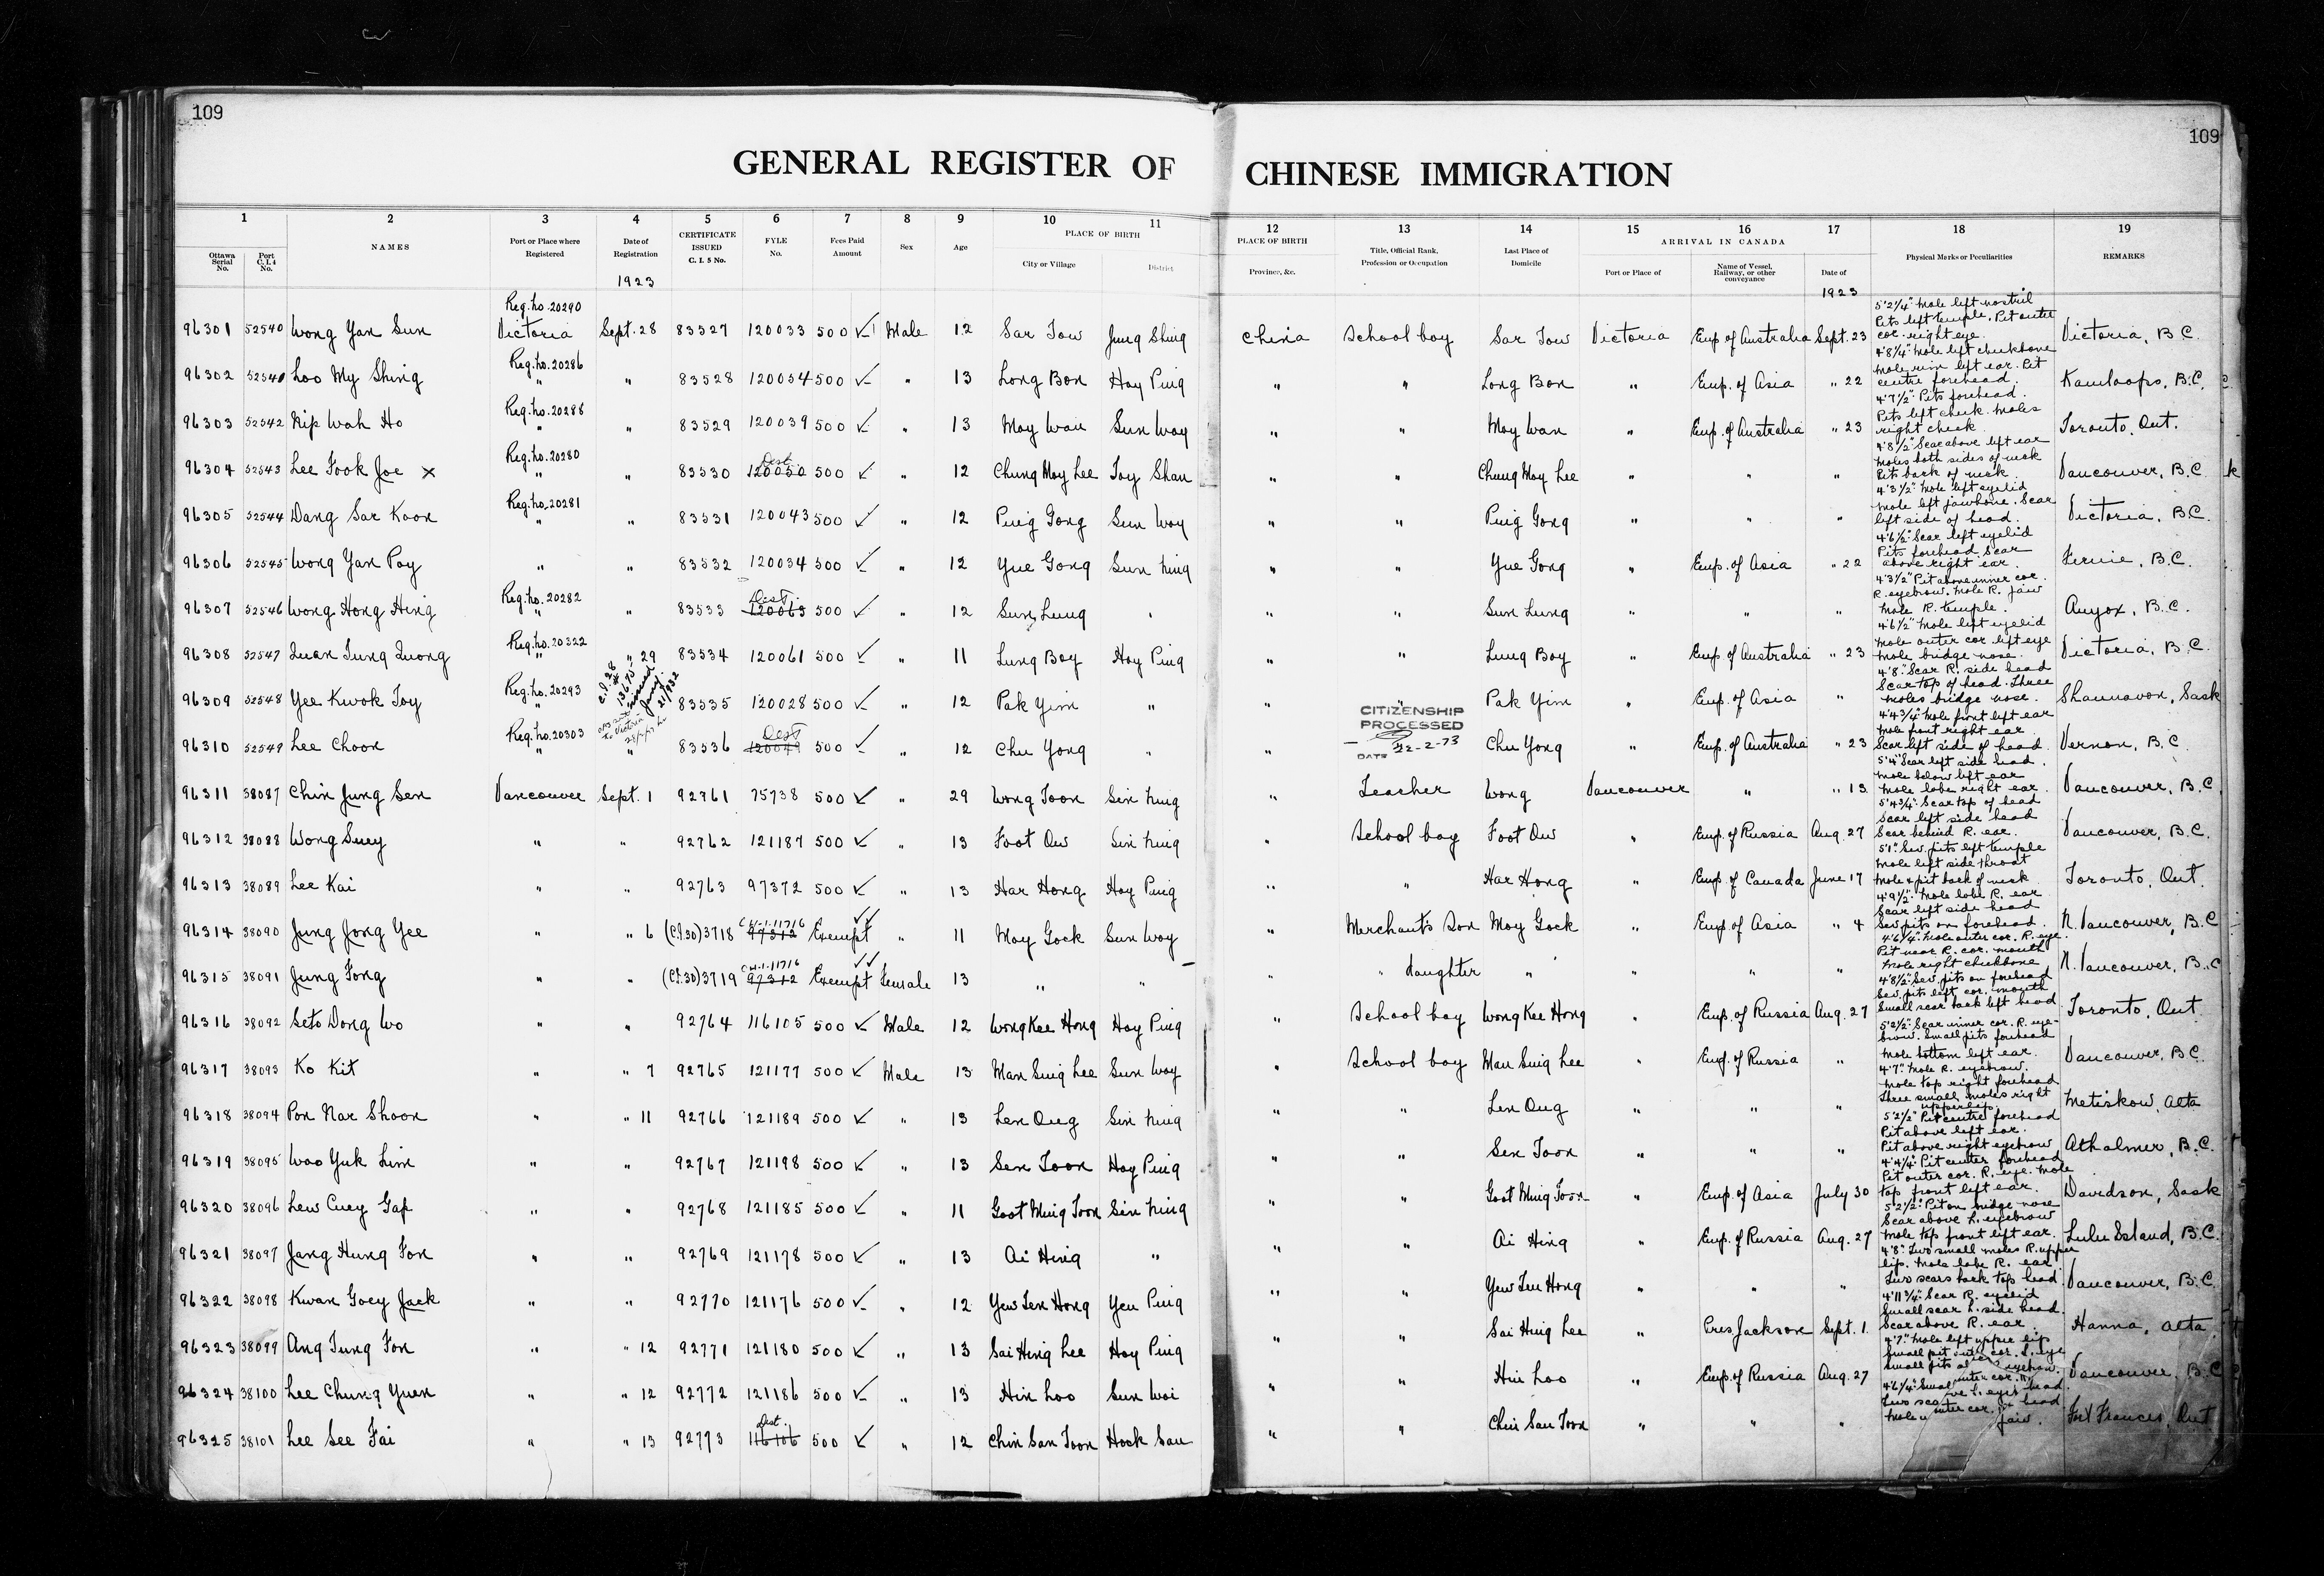 109
109
GENERAL REGISTER OF CHINESE IMMIGRATION
1 2 3 4 5 6 7 8 9 10 11 12 13 14 15 16 17 18 19
Ottawa Serial No. Port C.I.4 No. NAMES Port or Place where Registered Date of Registration CERTIFICATE ISSUED C. I. 5 No. FYLE No. Fees Paid Amount Sex Age PLACE OF BIRTH City or Village District PLACE OF BIRTH Province, &c. Title, Official Rank, Profession or Occupation Last Place of Domicile ARRIVAL IN CANADA Port or Place of Name of Vessel, Railway, or other conveyance Date of Physical Marks or Peculiarities REMARKS
1923 1923
Reg. No. 20290
96301 52540 Wong Yan Sun Victoria Sept. 28 83527 120033 500 ✓ Male 12 Sar Tow Jung Shing China School boy Sar Tow Victoria Emp. of Australia Sept. 23 5'2¼" Mole left nostril Pits left temple. Pit outer cor. right eye. Victoria, B.C.
Reg. No. 20286
96302 52541 Loo My Shing " " 83528 120054 500 ✓ " 13 Long Bon Hoy Ping " " Long Bon " Emp. of Asia " 22 4'8¼" Mole left cheekbone Mole rim left ear. Pit centre forehead. Kamloops, B.C.
Reg. No. 20288
96303 52542 Nip Wah Ho " " 83529 120039 500 ✓ " 13 Moy Wan Sun Woy " " Moy Wan " Emp. of Australia " 23 4'7½" Pits forehead. Pits left cheek. Moles right cheek. Toronto, Ont.
Reg. No. 20280
96304 52543 Lee Fook Joe x " " 83530 Dest. 120050 500 ✓ " 12 Chung Moy Lee Toy Shan " " Chung Moy Lee " " " 4'8½" Scar above left ear Moles both sides of neck Pits back of neck. Vancouver, B.C.
Reg. No. 20281
96305 52544 Dang Sar Koon " " 83531 120043 500 ✓ " 12 Ping Gong Sun Woy " " Ping Gong " " " 4'3½" Mole left eyelid Mole left jawbone. Scar left side of head. Victoria, B.C.
96306 52545 Wong Yan Poy " " 83532 120034 500 ✓ " 12 Yue Gong Sun Ning " " Yue Gong " Emp. of Asia " 22 4'6½" Scar left eyelid Pits forehead Scar above right ear. Fernie, B.C.
Reg. No. 20282
96307 52546 Wong Hong Hing " " 83533 Dest. 120063 500 ✓ " 12 Sun Lung " " " Sun Lung " " " 4'3½" Pit above inner cor. R. eyebrow. Mole R. jaw Mole R. temple. Anyox, B.C.
Reg. No. 20322
96308 52547 Quan Tung Quong " " 29 83534 120061 500 ✓ " 11 Lung Boy Hoy Ping " " Lung Boy " Emp. of Australia " 23 4'6½" Mole left eyelid Mole outer cor. left eye Mole bridge nose. Victoria, B.C.
Reg. No. 20293
96309 52548 Yee Kwok Toy " C.I. 28 # 13675 issued Jany. 21/1932 83535 120028 500 ✓ " 12 Pak Yim " " " Pak Yim " Emp. of Asia " 4'8" Scar R. side head Scar top of head. Three moles bridge nose. Shaunavon, Sask
Reg. No. 20303
96310 52549 Lee Choon " " 83536 Dest 120049 500 ✓ " 12 Chu Yong " " CITIZENSHIP PROCESSED DATE 22-2-73 Chu Yong " Emp. of Australia " 23 4'4¾" Mole front left ear Mole front right ear Scar left side of head. Vernon, B.C.
96311 38087 Chin Jung Sen Vancouver Sept. 1 92761 75738 500 ✓ " 29 Wong Toon Sin Ning " Teacher Wong Vancouver " " 13 5'4" Scar left side head. Mole below left ear Mole lobe right ear. Vancouver, B.C.
96312 38088 Wong Suey " " 92762 121187 500 ✓ " 13 Foot Ow Sin Ning " School boy Foot Ow " Emp. of Russia Aug. 27 5'4¾" Scar top of head Scar left side head Scar behind R. ear. Vancouver, B.C.
96313 38089 Lee Kai " " 92763 97372 500 ✓ " 13 Har Hong Hoy Ping " " Har Hong " Emp. of Canada June 17 5'1" Sev. pits left temple Mole left side throat Mole & pit back of neck Toronto, Ont.
96314 38090 Jung Jong Yee " " 6 (C.I.30) 3718 C.W.-1-11716 97312 Exempt ✓✓ " 11 Moy Gock Sun Woy " Merchant's Son Moy Gock " Emp. of Asia " 4 4'9½" Mole lobe R. ear Scar left side head Sev. pits on forehead. N. Vancouver, B.C.
96315 38091 Jung Fong " " (C.I.30) 3719 C.W.-1-11716 97312 Exempt ✓✓ Female 13 " " " " daughter " " " " 4'6¼" Mole outer cor. R. eye. Pit near R. cor. mouth Mole right cheekbone N. Vancouver, B.C.
96316 38092 Seto Dong Wo " " 92764 116105 500 ✓ Male 12 Wong Kee Hong Hoy Ping " School boy Wong Kee Hong " Emp. of Russia Aug. 27 4'8½" Sev. pits on forehead Sev. pits left cor. mouth Small scar back left head Toronto, Ont
96317 38093 Ko Kit " " 7 92765 121177 500 ✓ Male 13 Man Sing Lee Sun Woy " School boy Man Sing Lee " Emp. of Russia " 5'2½" Scar inner cor. R. eyebrow. Small pits forehead Mole bottom left ear. Vancouver, B.C.
96318 38094 Pon Nar Shoon " " 11 92766 121189 500 ✓ " 13 Len Oug Sin Ning " " Len Oug " " " 4'7" Mole R. eyebrow. Mole top right forehead Three small moles right upper lip. Metiskow, Alta
96319 38095 Woo Yuk Lim " " 92767 121198 500 ✓ " 13 Sen Toon Hoy Ping " " Sen Toon " " " 5'2½" Pit centre forehead Pit above left ear. Pit above right eyebrow Athalmer, B.C.
96320 38096 Lew Cuey Gap " " 92768 121185 500 ✓ " 11 Goot Ming Toon Sin Ning " " Goot Ming Toon " Emp. of Asia July 30 4'4¼" Pit center forehead Pit outer cor. R. eye. Mole top front left ear. Davidson, Sask
96321 38097 Jang Hung Fon " " 92769 121178 500 ✓ " 13 Ai Hing " " " Ai Hing " Emp. of Russia Aug. 27 5'2½" Pit on bridge nose Scar above L. eyebrow Mole top front left ear. Lulu Island, B.C.
96322 38098 Kwan Goey Jack " " 92770 121176 500 ✓ " 12 Yew Ten Hong Yen Ping " " Yew Ten Hong " " " 4'8" Two small moles R. upper lip. Mole lobe R. ear. Two scars back top head. Vancouver, B.C.
96323 38099 Ang Tung Fon " " 12 92771 121180 500 ✓ " 13 Sai Hing Lee Hoy Ping " " Sai Hing Lee " Pres. Jackson Sept. 1. 4'11¾" Scar R. eyelid Small scar L. side head. Scar above R. ear. Hanna, Alta
96324 38100 Lee Chung Yuen " " 12 92772 121186 500 ✓ " 13 Hin Loo Sun Woi " " Hin Loo " Emp. of Russia Aug. 27 4'7" Mole left upper lip Small pit outer cor. L. eye Small pits eyebrow. Vancouver, B.C.
96325 38101 Lee See Fai " " 13 92773 Dest. 116106 500 ✓ " 12 Chin San Toon Hock San " " Chin San Toon " " " 4'6¼" head. jaw. Fort Frances, Ont